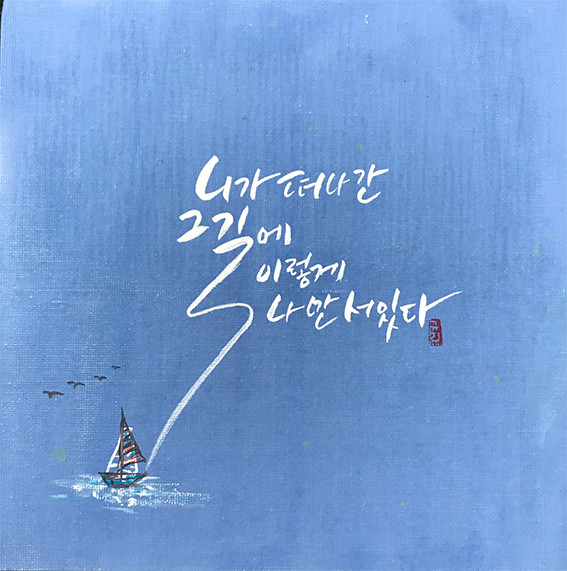 니가 떠나간
그 길에
이렇게
나만 서있다